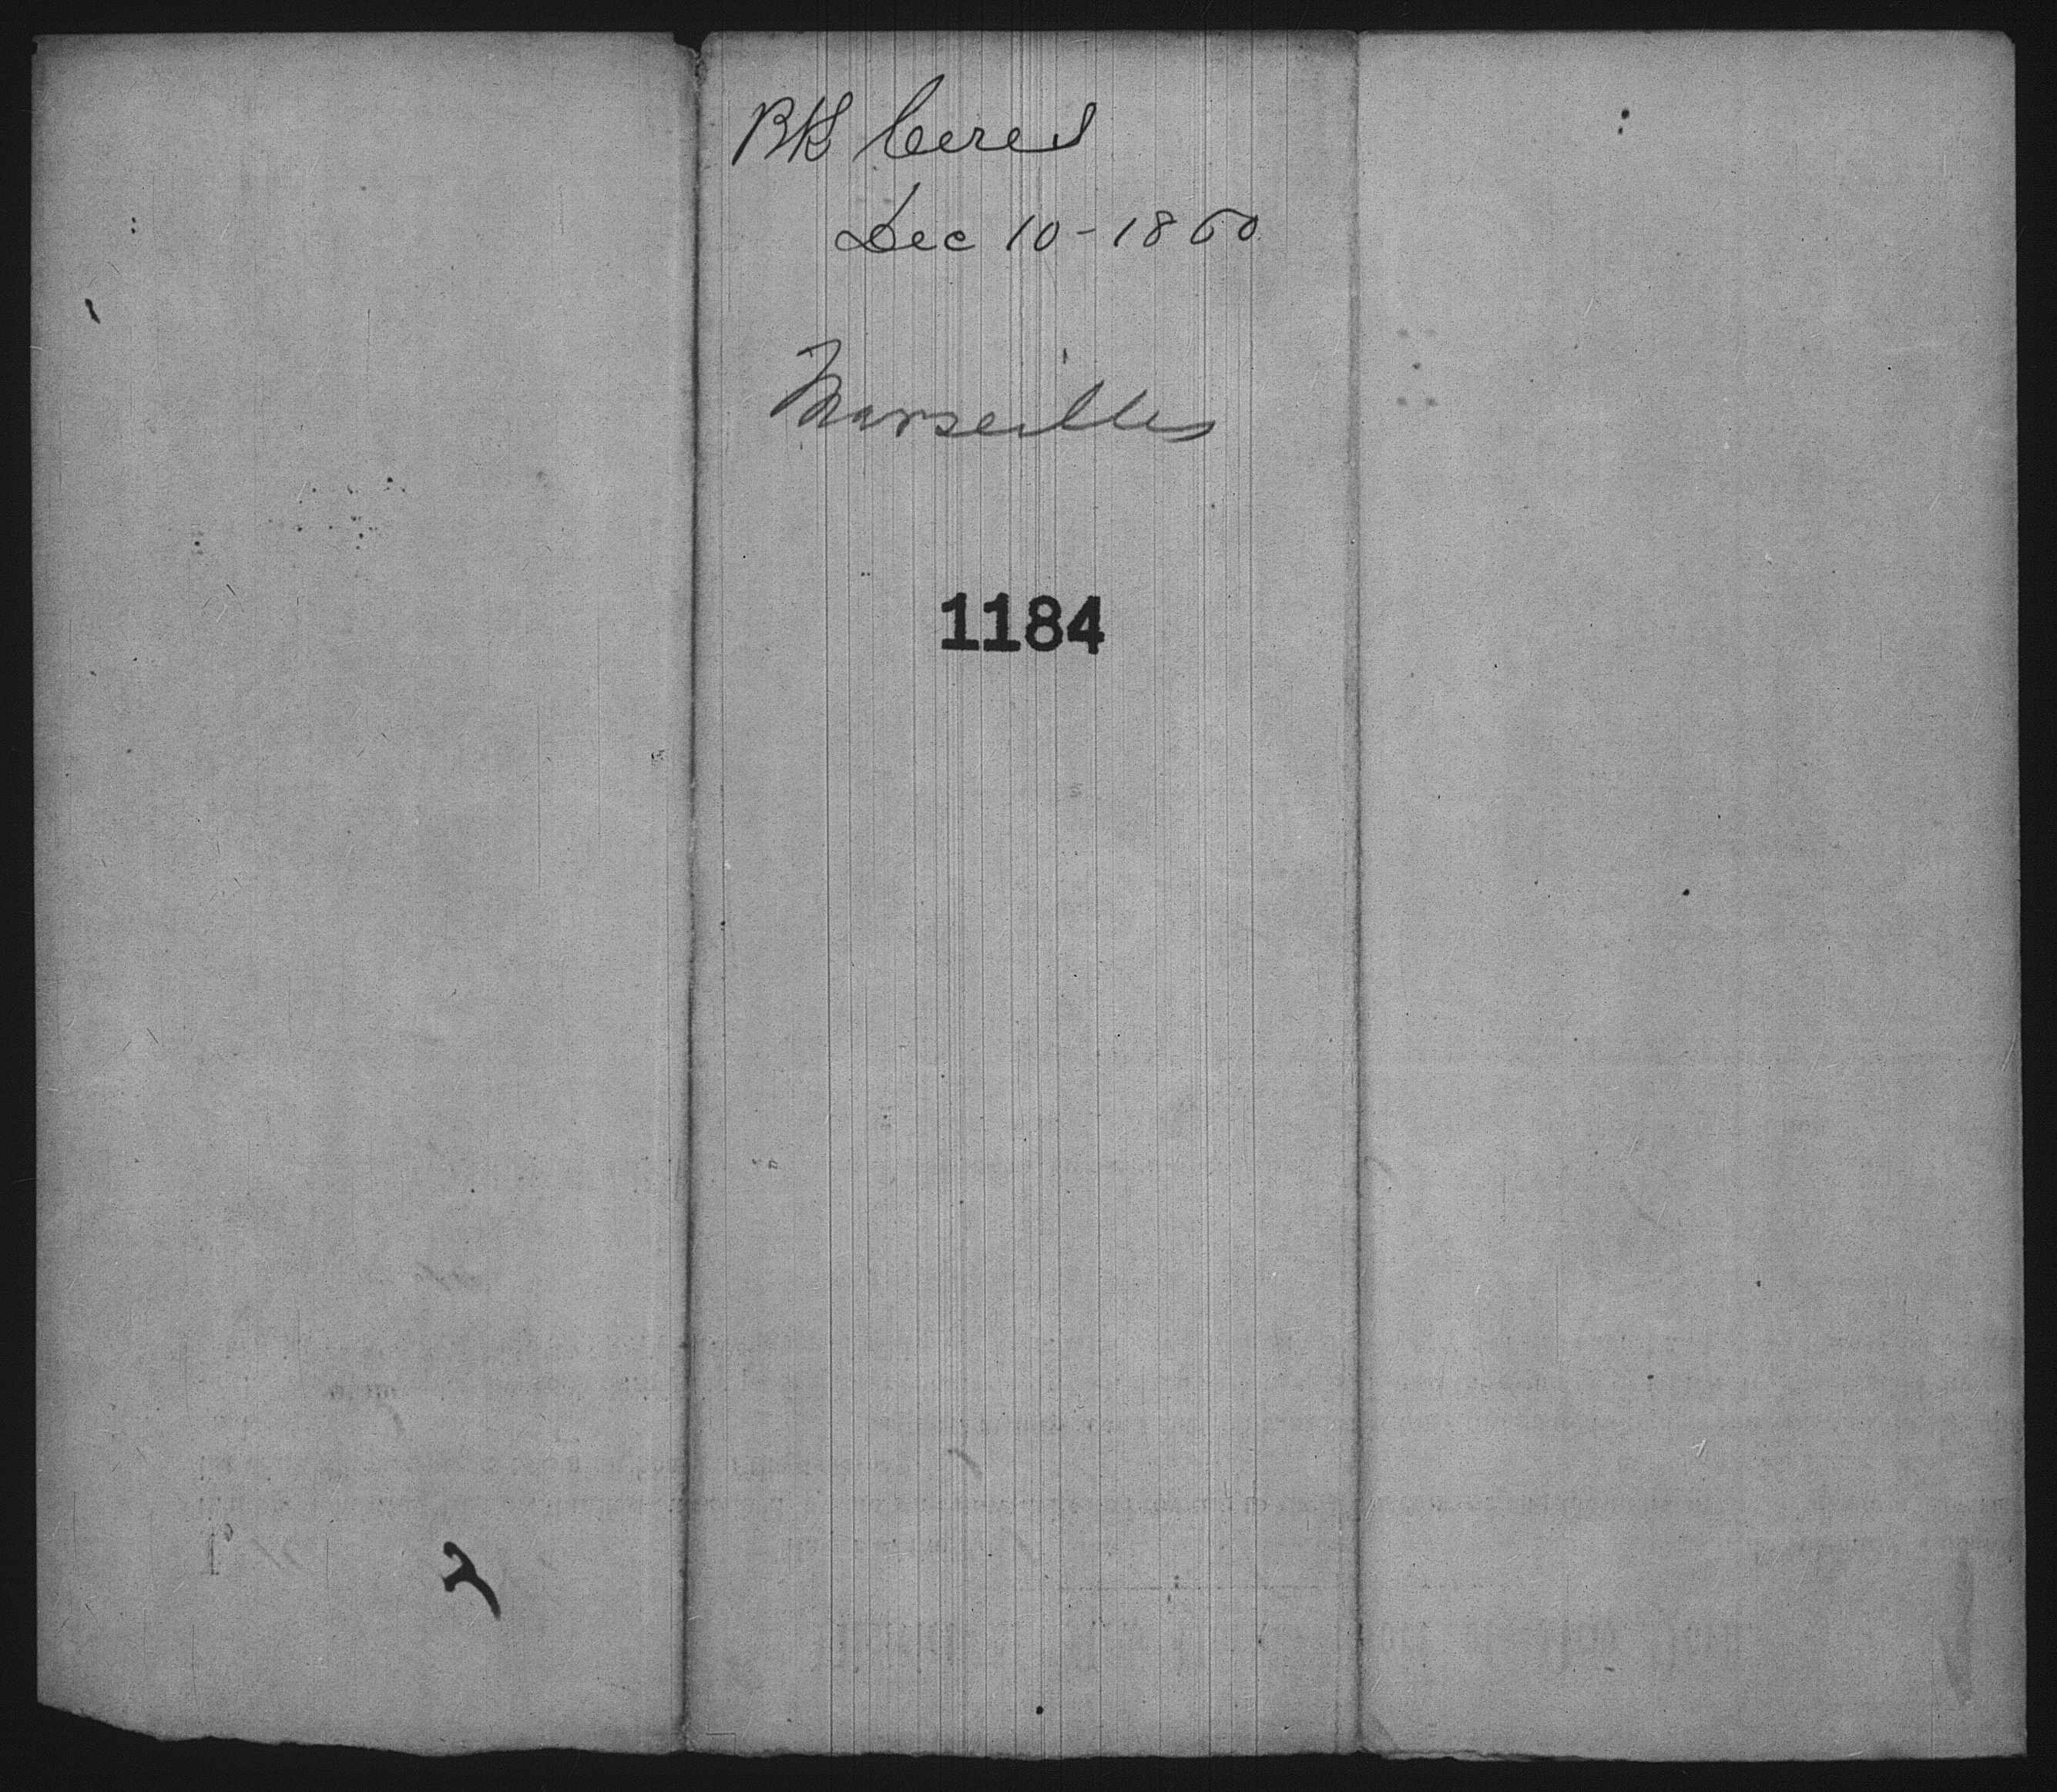 Bk Ceres
Dec 10-1860
Marseilles
1184